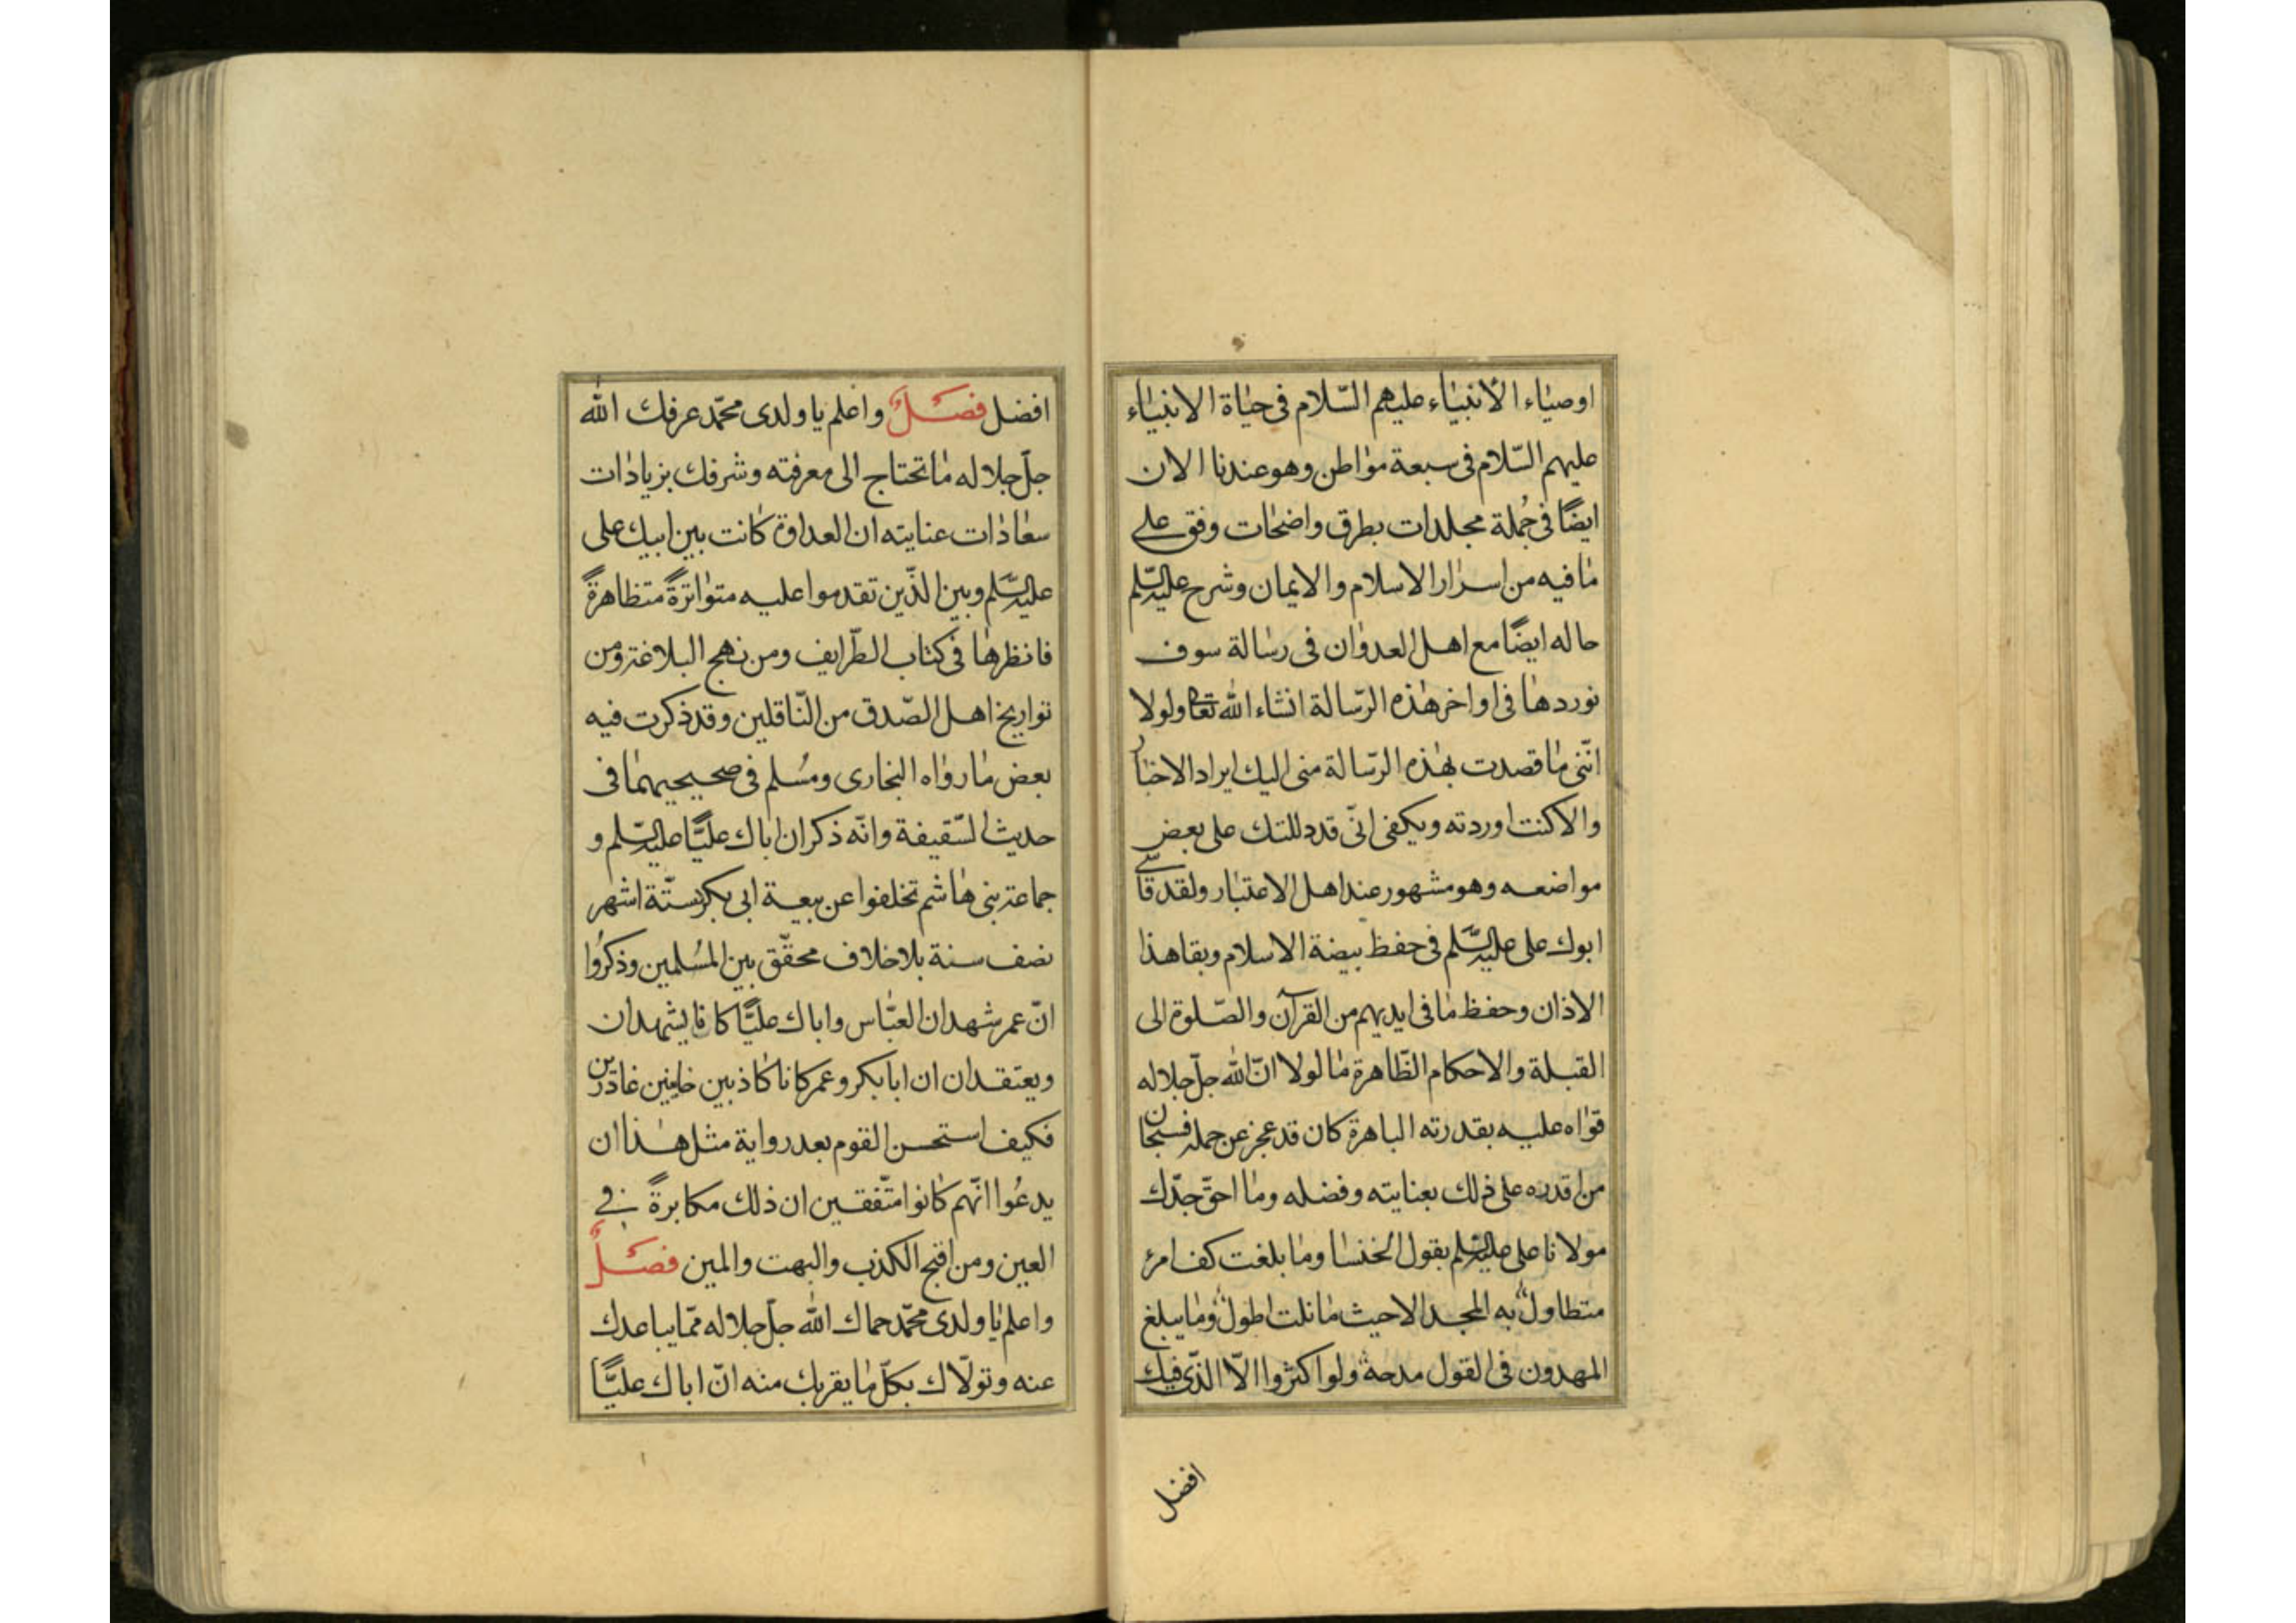 اوصيٰاء الأنبيٰاء عليهم السّلام فى حيٰاة الانبيٰاء
عليهم السّلام فى سبعة موٰاطن وهو عندنا الان
ايضًا فى جُملة مجلدات بطرق واضحٰات وفق على
مٰا فيه من اسرٰار الاسلام والايمان وشرح عليه السّلم
حاله ايضًا مع اهل العدوٰان فى رسٰالة سوف
نوردهٰا فى اواخر هٰذه الرّسٰالة انشاء الله تعٰا ولولا
انّنى مٰا قصدت بهٰذه الرّسٰالة منى اليك ايراد الاخبٰار
والا كنت اوردته ويكفى انّى قد دللتك على بعض
مواضعه وهو مشهور عند اهل الاعتبٰار ولقد قاسى
ابوك على عليه السَّلم فى حفظ بيضة الاسلام وبقا هذا
الاذان وحفظ مٰا فى ايديهم من القرآن والصّلوة الى
القبلة والاحكام الظّاهرة مٰا لولا انّ الله جلّ جلاله
قوّاه عليه بقدرته الباهرة كان قد عجز عن حمله فسبحان
من اقدره على ذلك بعنايته وفضله ومٰا احقّ جدّك
مولانا على عليه السّلم بقول الخنسٰا ومٰا بلغت كف امرء
متطاولٌ به المجد الا حيث مٰا نلت اطولُ ومٰا يبلغ
المهدون فى القول مدحة ولو اكثروا الّا الّذى فيك
افضل
افضل فصَلٌ واعلم يا ولدى محمّد عرفك الله
جلّ جلاله مٰا تحتاج الى معرفته وشرفك بزيادٰات
سعٰادٰات عنايته ان العداوة كٰانت بين ابيك على
عليه السَّلم وبين الّذين تقدموا عليه متوٰاترةً متظاهرةً
فانظرهٰا فى كتٰاب الطّرايف ومن نهج البلاغة ومن
تواريخ اهل الصّدق من النّاقلين وقد ذكرت فيه
بعض مٰا روٰاه البخارى ومسُلم فى صحيحيهمٰا فى
حديث السّقيفة وانّه ذكر ان اباك عليًّا عليه السّلم و
جماعة بنى هٰاشم تخلفوا عن بيعة ابى بكر ستّة اشهر
نصف سنة بلا خلاف محقّق بين المسُلمين وذكرُوا
انّ عمر شهد ان العبّٰاس واباك عليًّا كانا يشهدان
ويعتقدان ان ابا بكر وعمر كانا كٰاذبين خاينين غادرين
فكيف استحسن القوم بعد رواية مثل هٰذا ان
يدعُوا انّهم كٰانوا متّفقين ان ذلك مكابرةً فى
العين ومن اقبح الكذب والبهت والمين فصَلٌ
واعلم يٰا ولدى محمّد حماك الله جلّ جلاله ممّا يباعدك
عنه وتولّاك بكلّ مٰا يقربك منه انّ اباك عليًّا